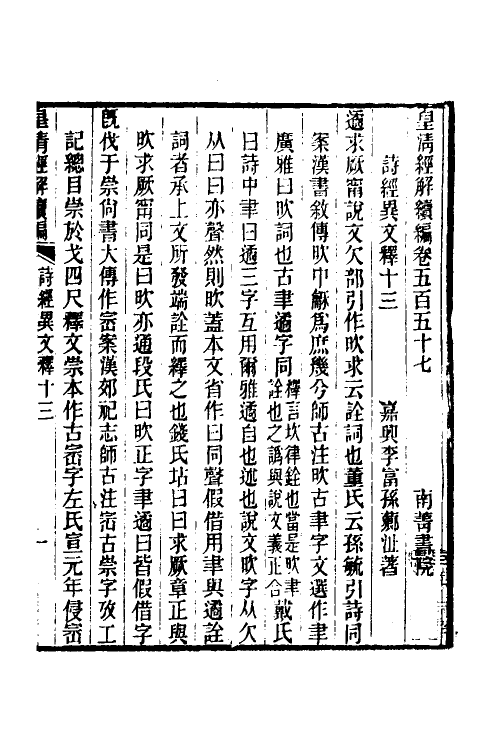 皇清經解續編卷五百五十七　南菁書院
詩經異文釋十三　嘉興李富孫薌沚著
遹求厥甯說文欠部引作欥求云詮詞也董氏云孫毓引詩同
案漢書敘傳欥中龢爲庶幾兮師古注欥古聿字文選作聿
廣雅曰欥詞也古聿遹字同釋言坎律銓也當是欥聿詮也之譌與說文義正合戴氏
曰詩中聿曰遹三字互用爾雅遹自也述也說文欥字从欠
从曰曰亦聲然則欥蓋本文省作曰同聲假借用聿與遹詮
詞者承上文所發端詮而釋之也錢氏坫曰曰求厥章正與
欥求厥甯同是曰欥亦通段氏曰欥正字聿遹曰皆假借字
旣伐于崇尙書大傳作崈案漢郊祀志師古注崈古崇字攷工
記總目崇於戈四尺釋文崇本作古崈字左氏宣元年侵崈
皇清經解續編　詩經異文釋十三　一